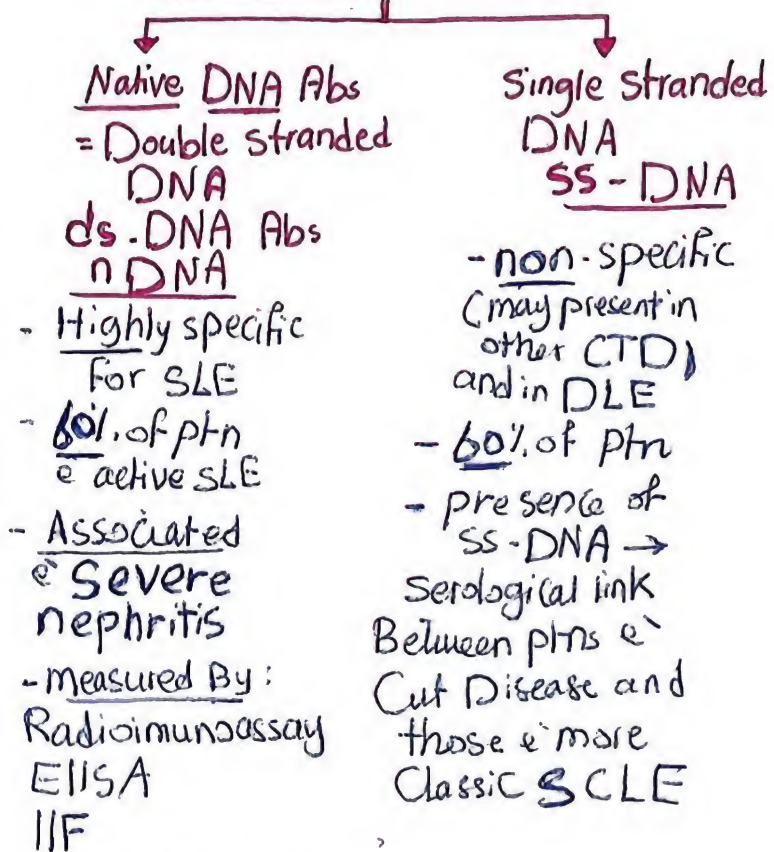 Native DNA Abs
= Double stranded
DNA
ds-DNA Abs
nDNA
- Highly specific
For SLE
- 60%. of ptn
è active SLE
- Associated
è Severe
nephritis
- measured By:
Radioimunoassay
ElISA
IIF
Single stranded
DNA
SS-DNA
- non-specific
(may present in
other CTD)
and in DLE
- 60% of ptn
- presence of
SS-DNA →
Serological link
Between ptns è
Cut Disease and
those è more
Classic SCLE